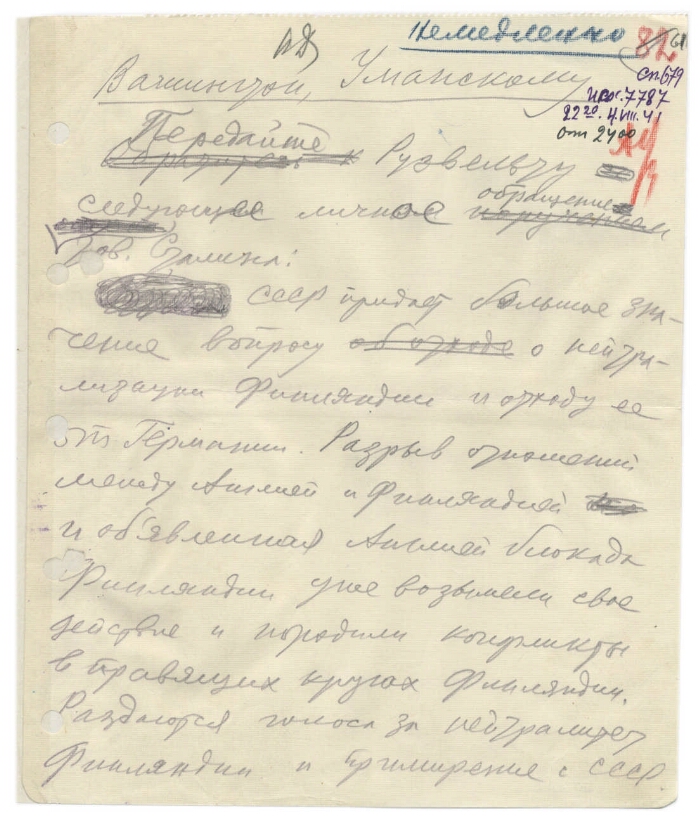 Немедленно
Сп679
исх. 7787
22²⁰. 4.VIII.41
от 2400
Вашингтон, Уманскому
Передайте
Рузвельту
следующее личное обращение
тов. Сталина:
СССР придает большое зна-
чение вопросу об отходе о нейтра-
лизации Финляндии и отходу ее
от Германии. Разрыв отношений
между Англией и Финляндией
и об'явленная Англией блокада
Финляндии уже возымели свое
действие и породили конфликты
в правящих кругах Финляндии.
Раздаются голоса за нейтралитет
Финляндии и примирение с СССР